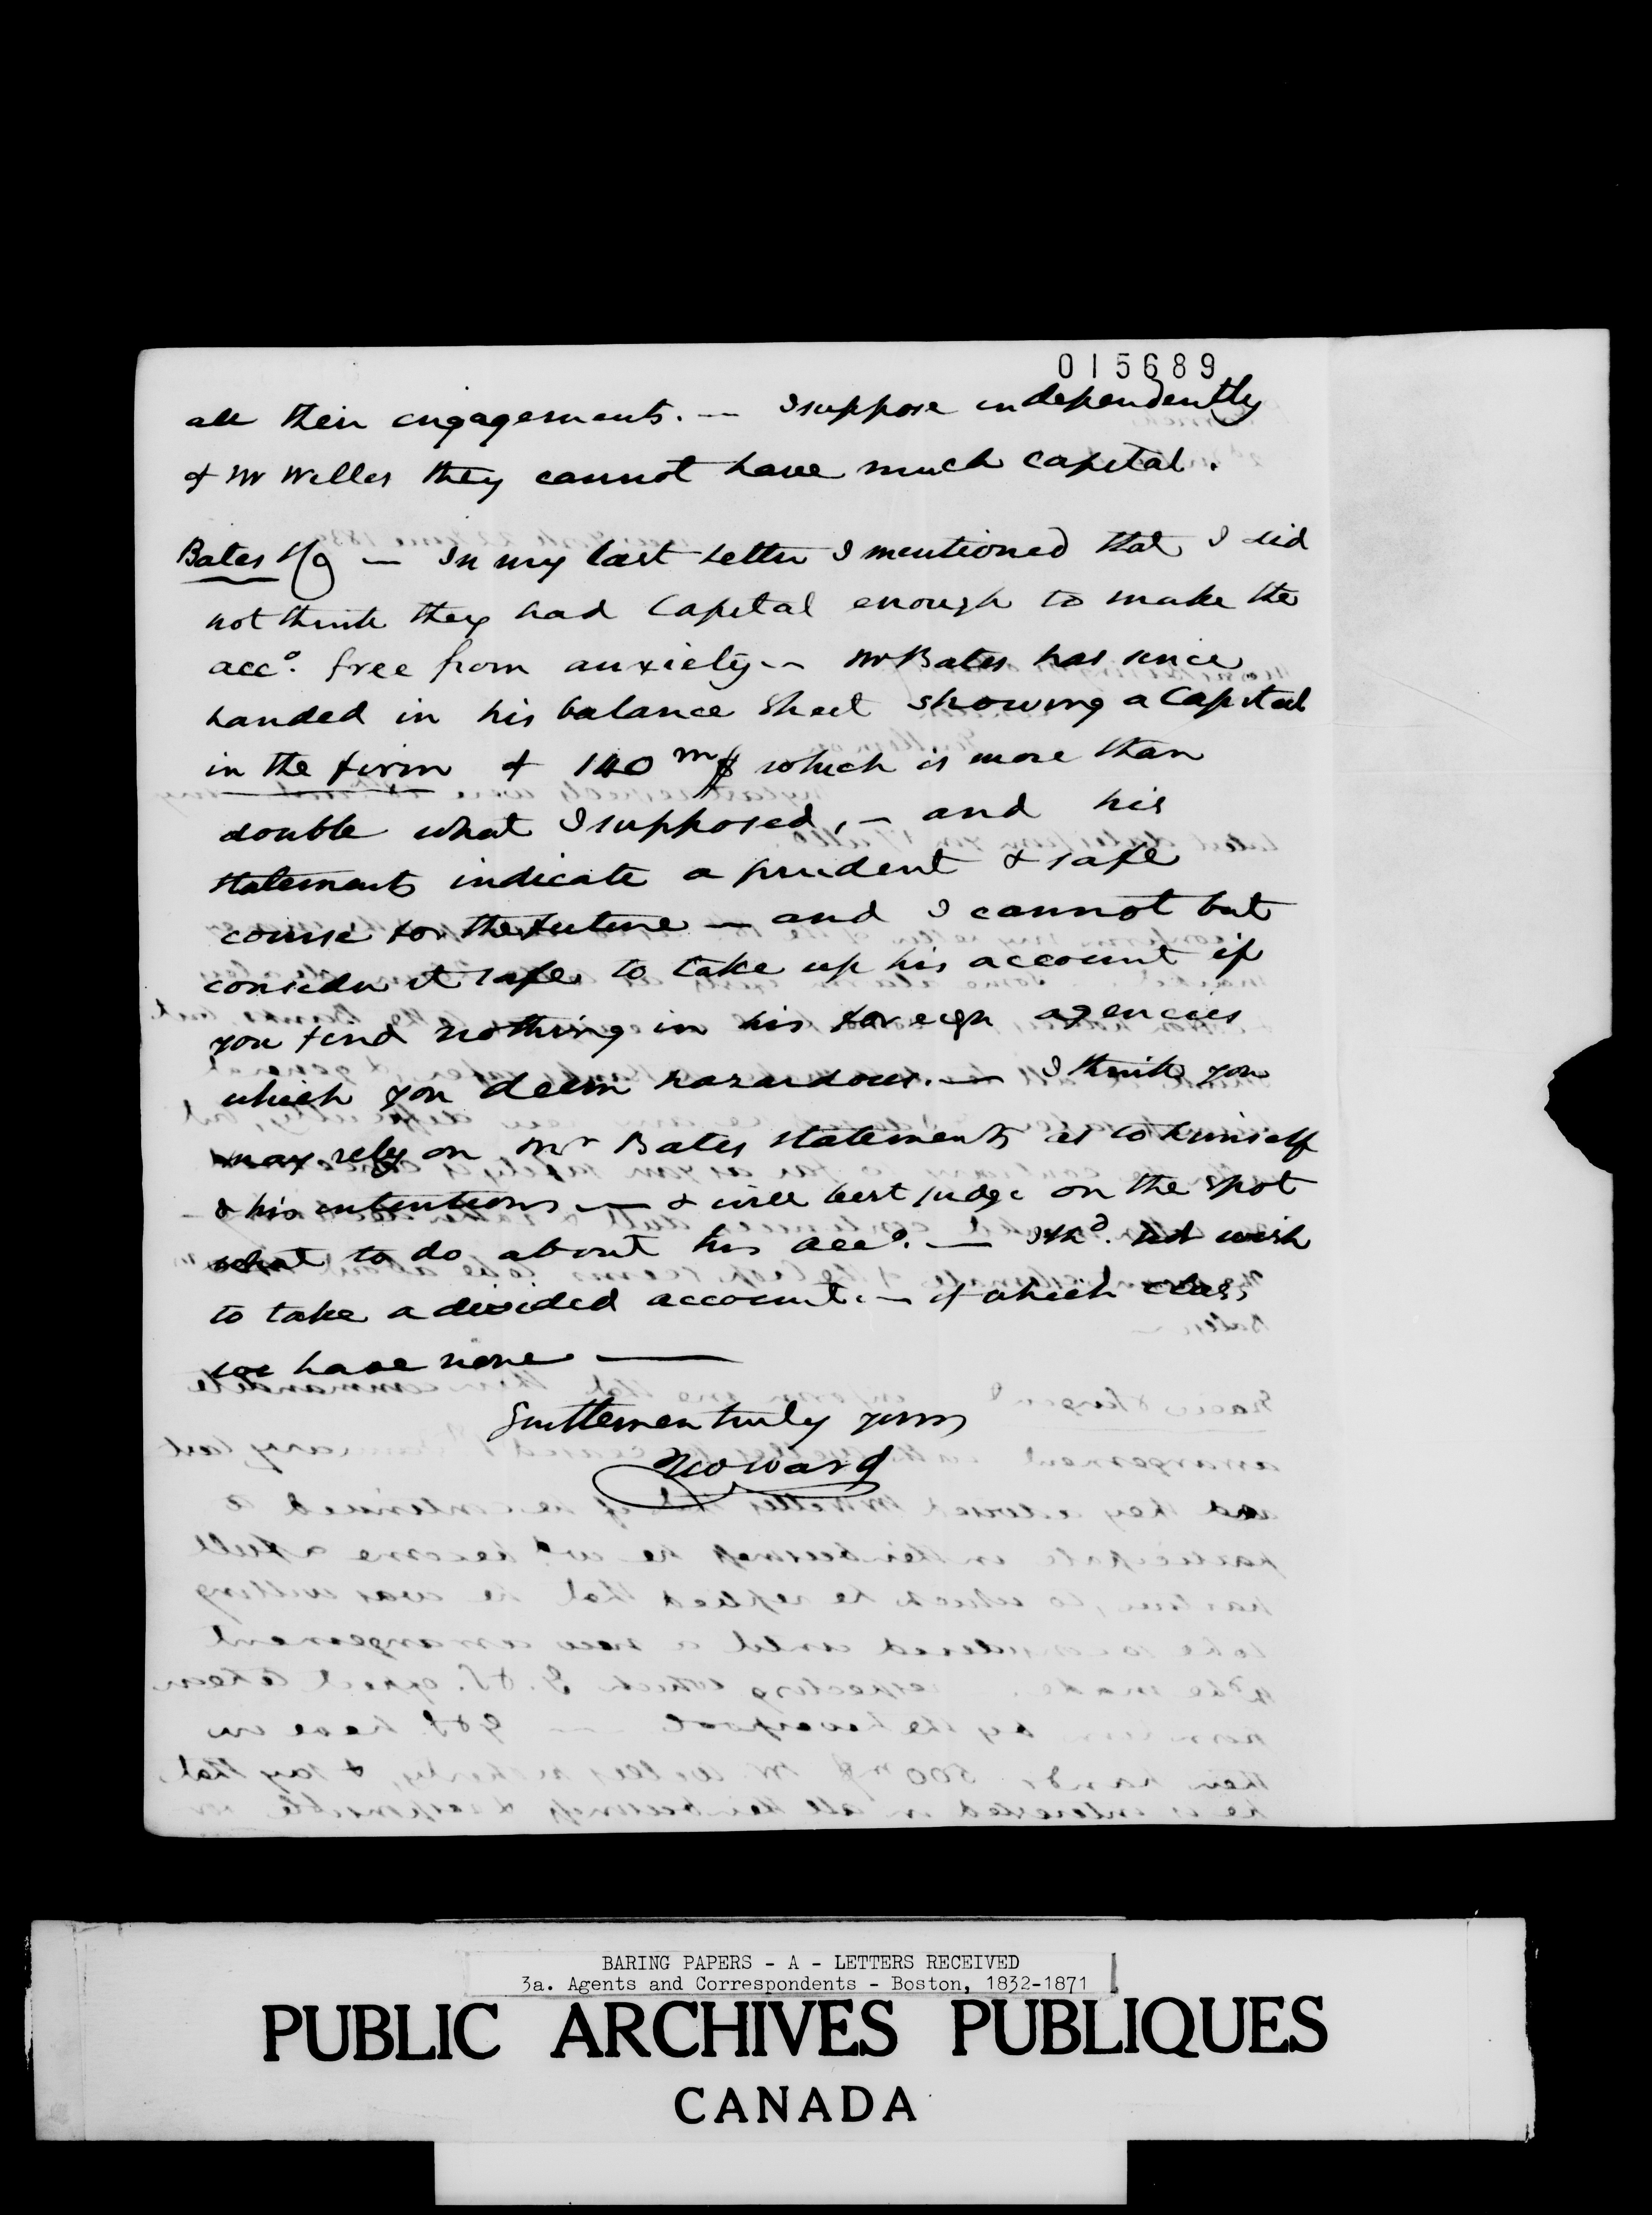 015689
all their engagements. — I suppose independently
of Mr Willes they cannot have much capital.
Bates & Co — In my last letter I mentioned that I did
not think they had Capital enough to make the
acco. free from anxiety — Mr Bates has since
handed in his balance Sheet showing a Capital
in the firm of 140 m$ which is more than
double what I supposed, — and his
statements indicate a prudent & safe
course for the future — and I cannot but
consider it safe to take up his account if
you find nothing in his foreign agencies
which you deem hazardous. — I think you
may rely on Mr Bates statements as to himself
& his intentions — & will best judge on the spot
what to do about his acco. — I shd. not wish
to take a divided account. — of which class
we have none —
Gentlemen truly yours
TWWard
BARING PAPERS - A - LETTERS RECEIVED
3a. Agents and Correspondents - Boston, 1832-1871
PUBLIC ARCHIVES PUBLIQUES
CANADA